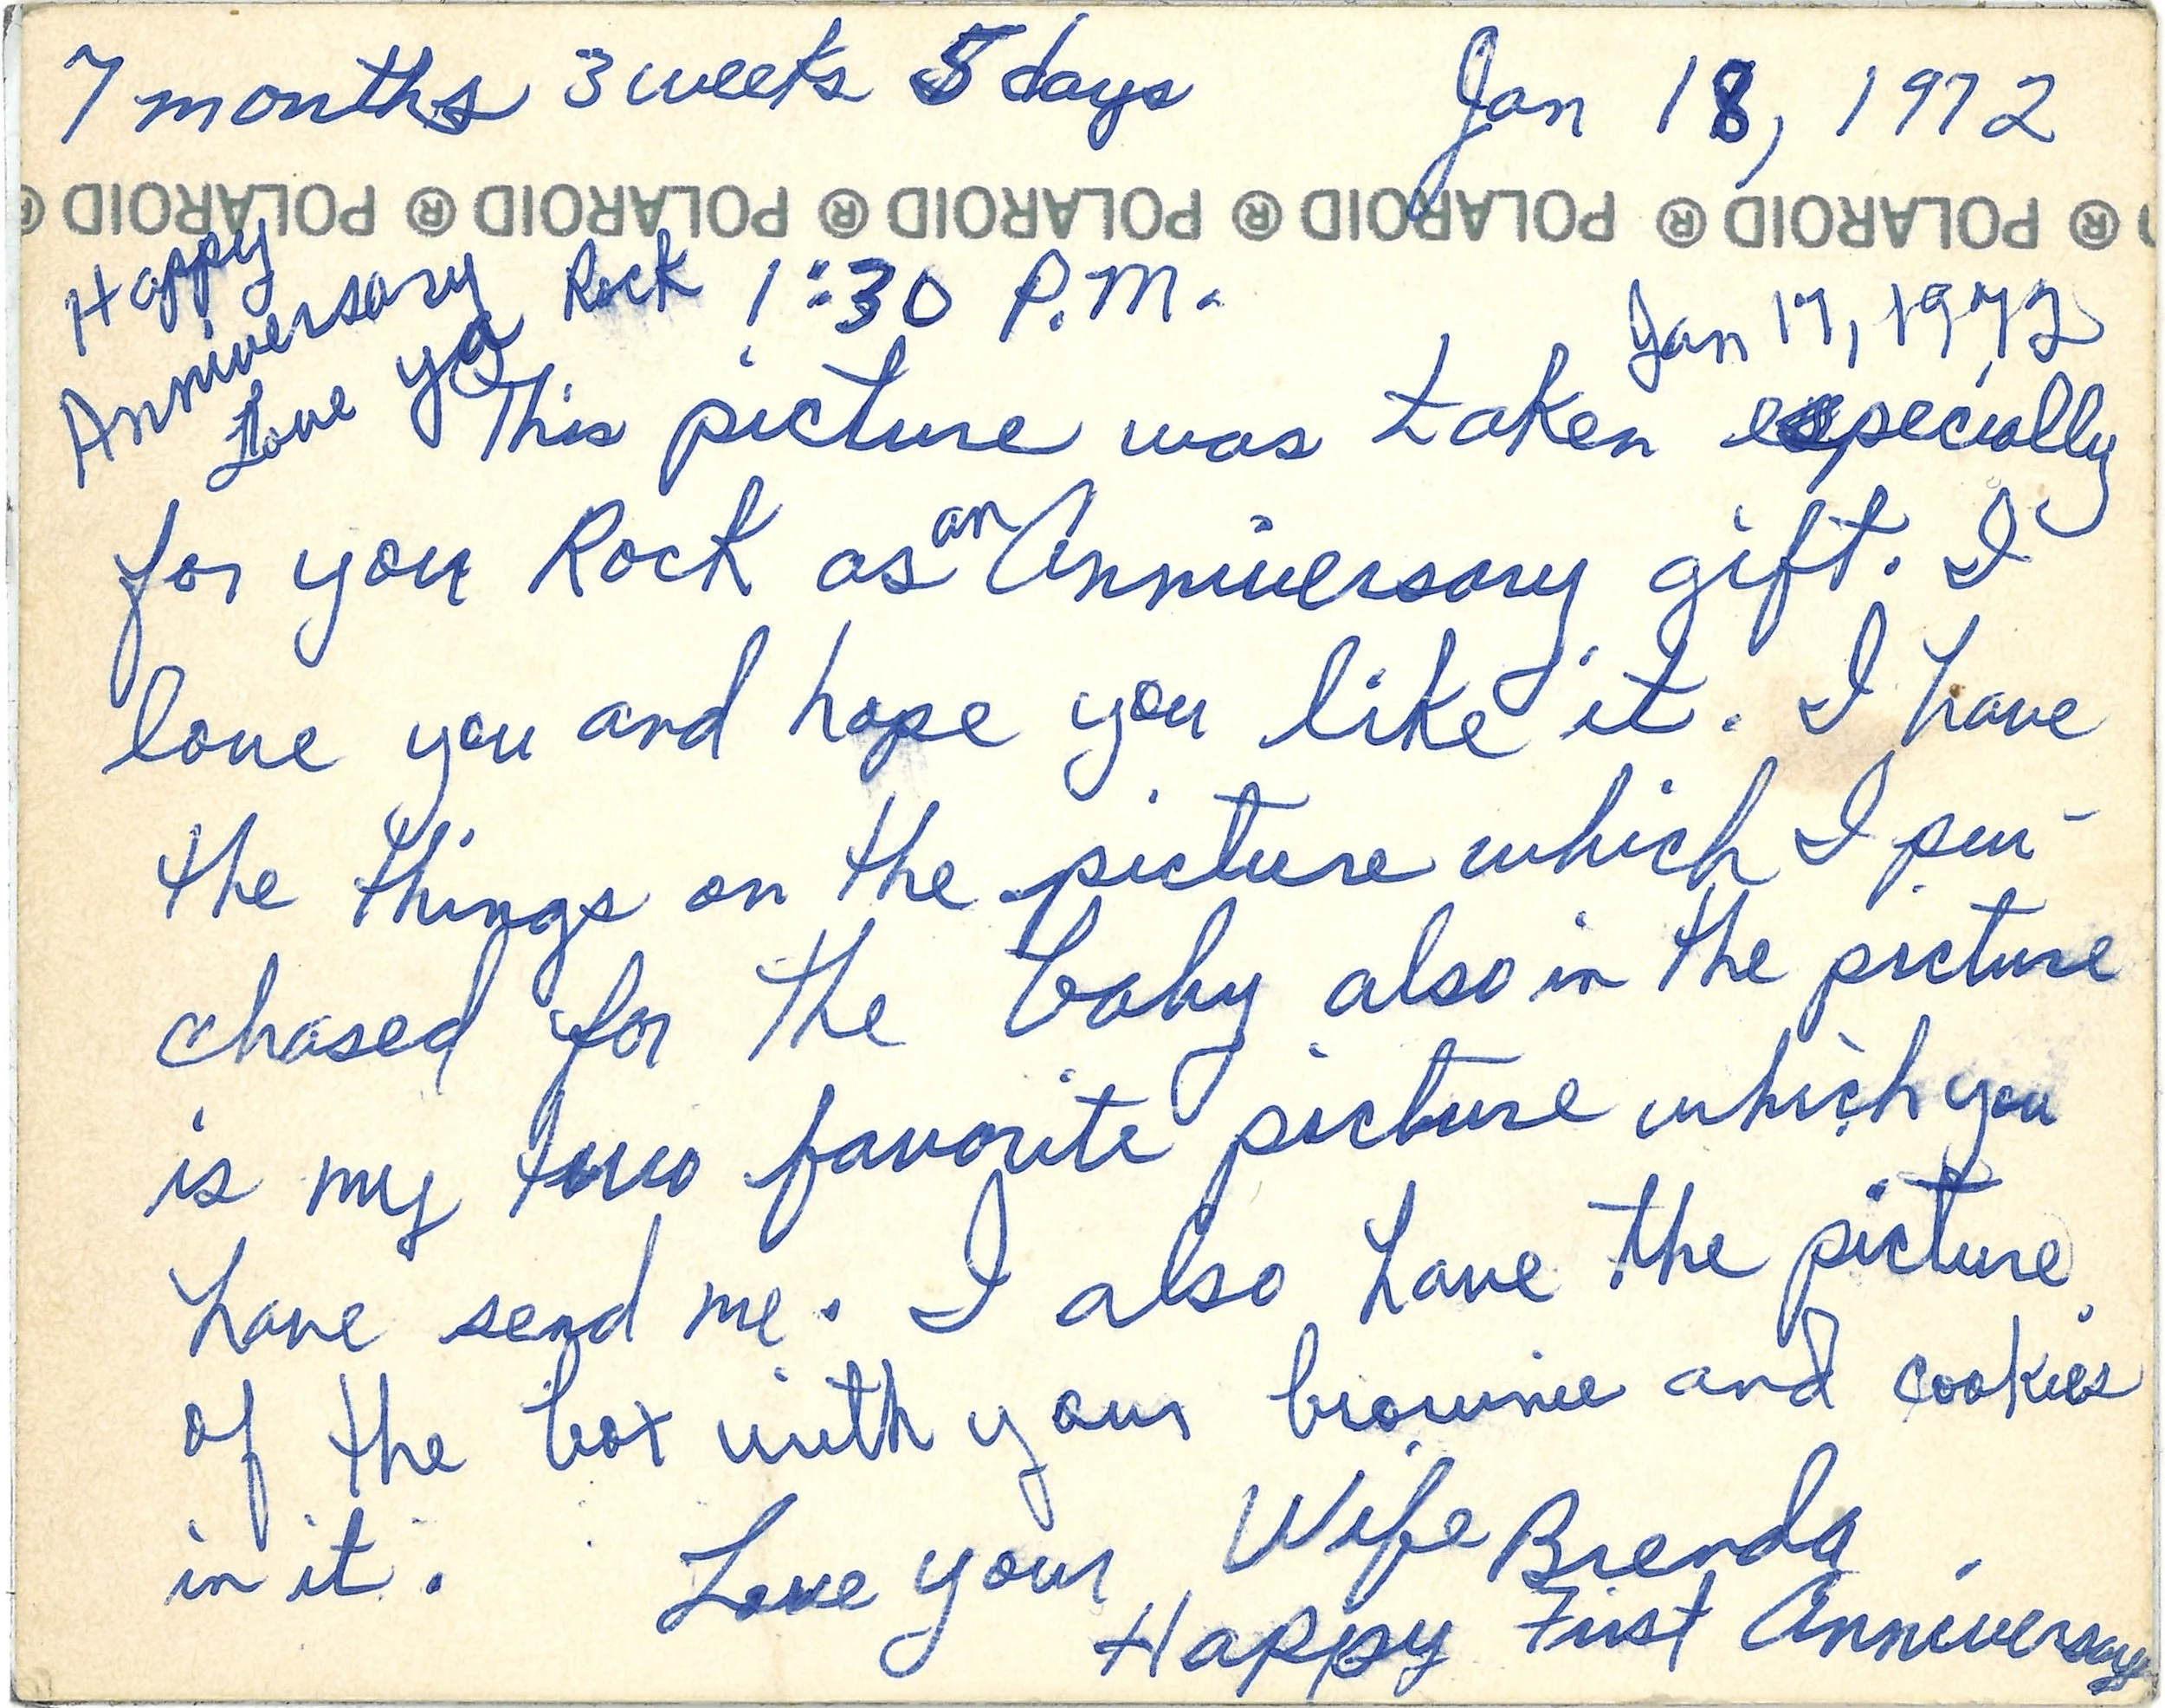 7 months 3 weeks 5 days Jan 18, 1972
POLAROID ® POLAROID ® POLAROID ® POLAROID ® POLAROID ®
Happy
Anniversary Rock 1:30 P.M. Jan 17, 1972
Love ya
This picture was taken especially
for you Rock as an Anniversary gift. I
love you and hope you like it. I have
the things on the picture which I pur-
chased for the baby also in the picture
is my two favorite picture which you
have send me. I also have the picture
of the box with your brownie and cookies
in it. Love your Wife Brenda
Happy First Anniversary